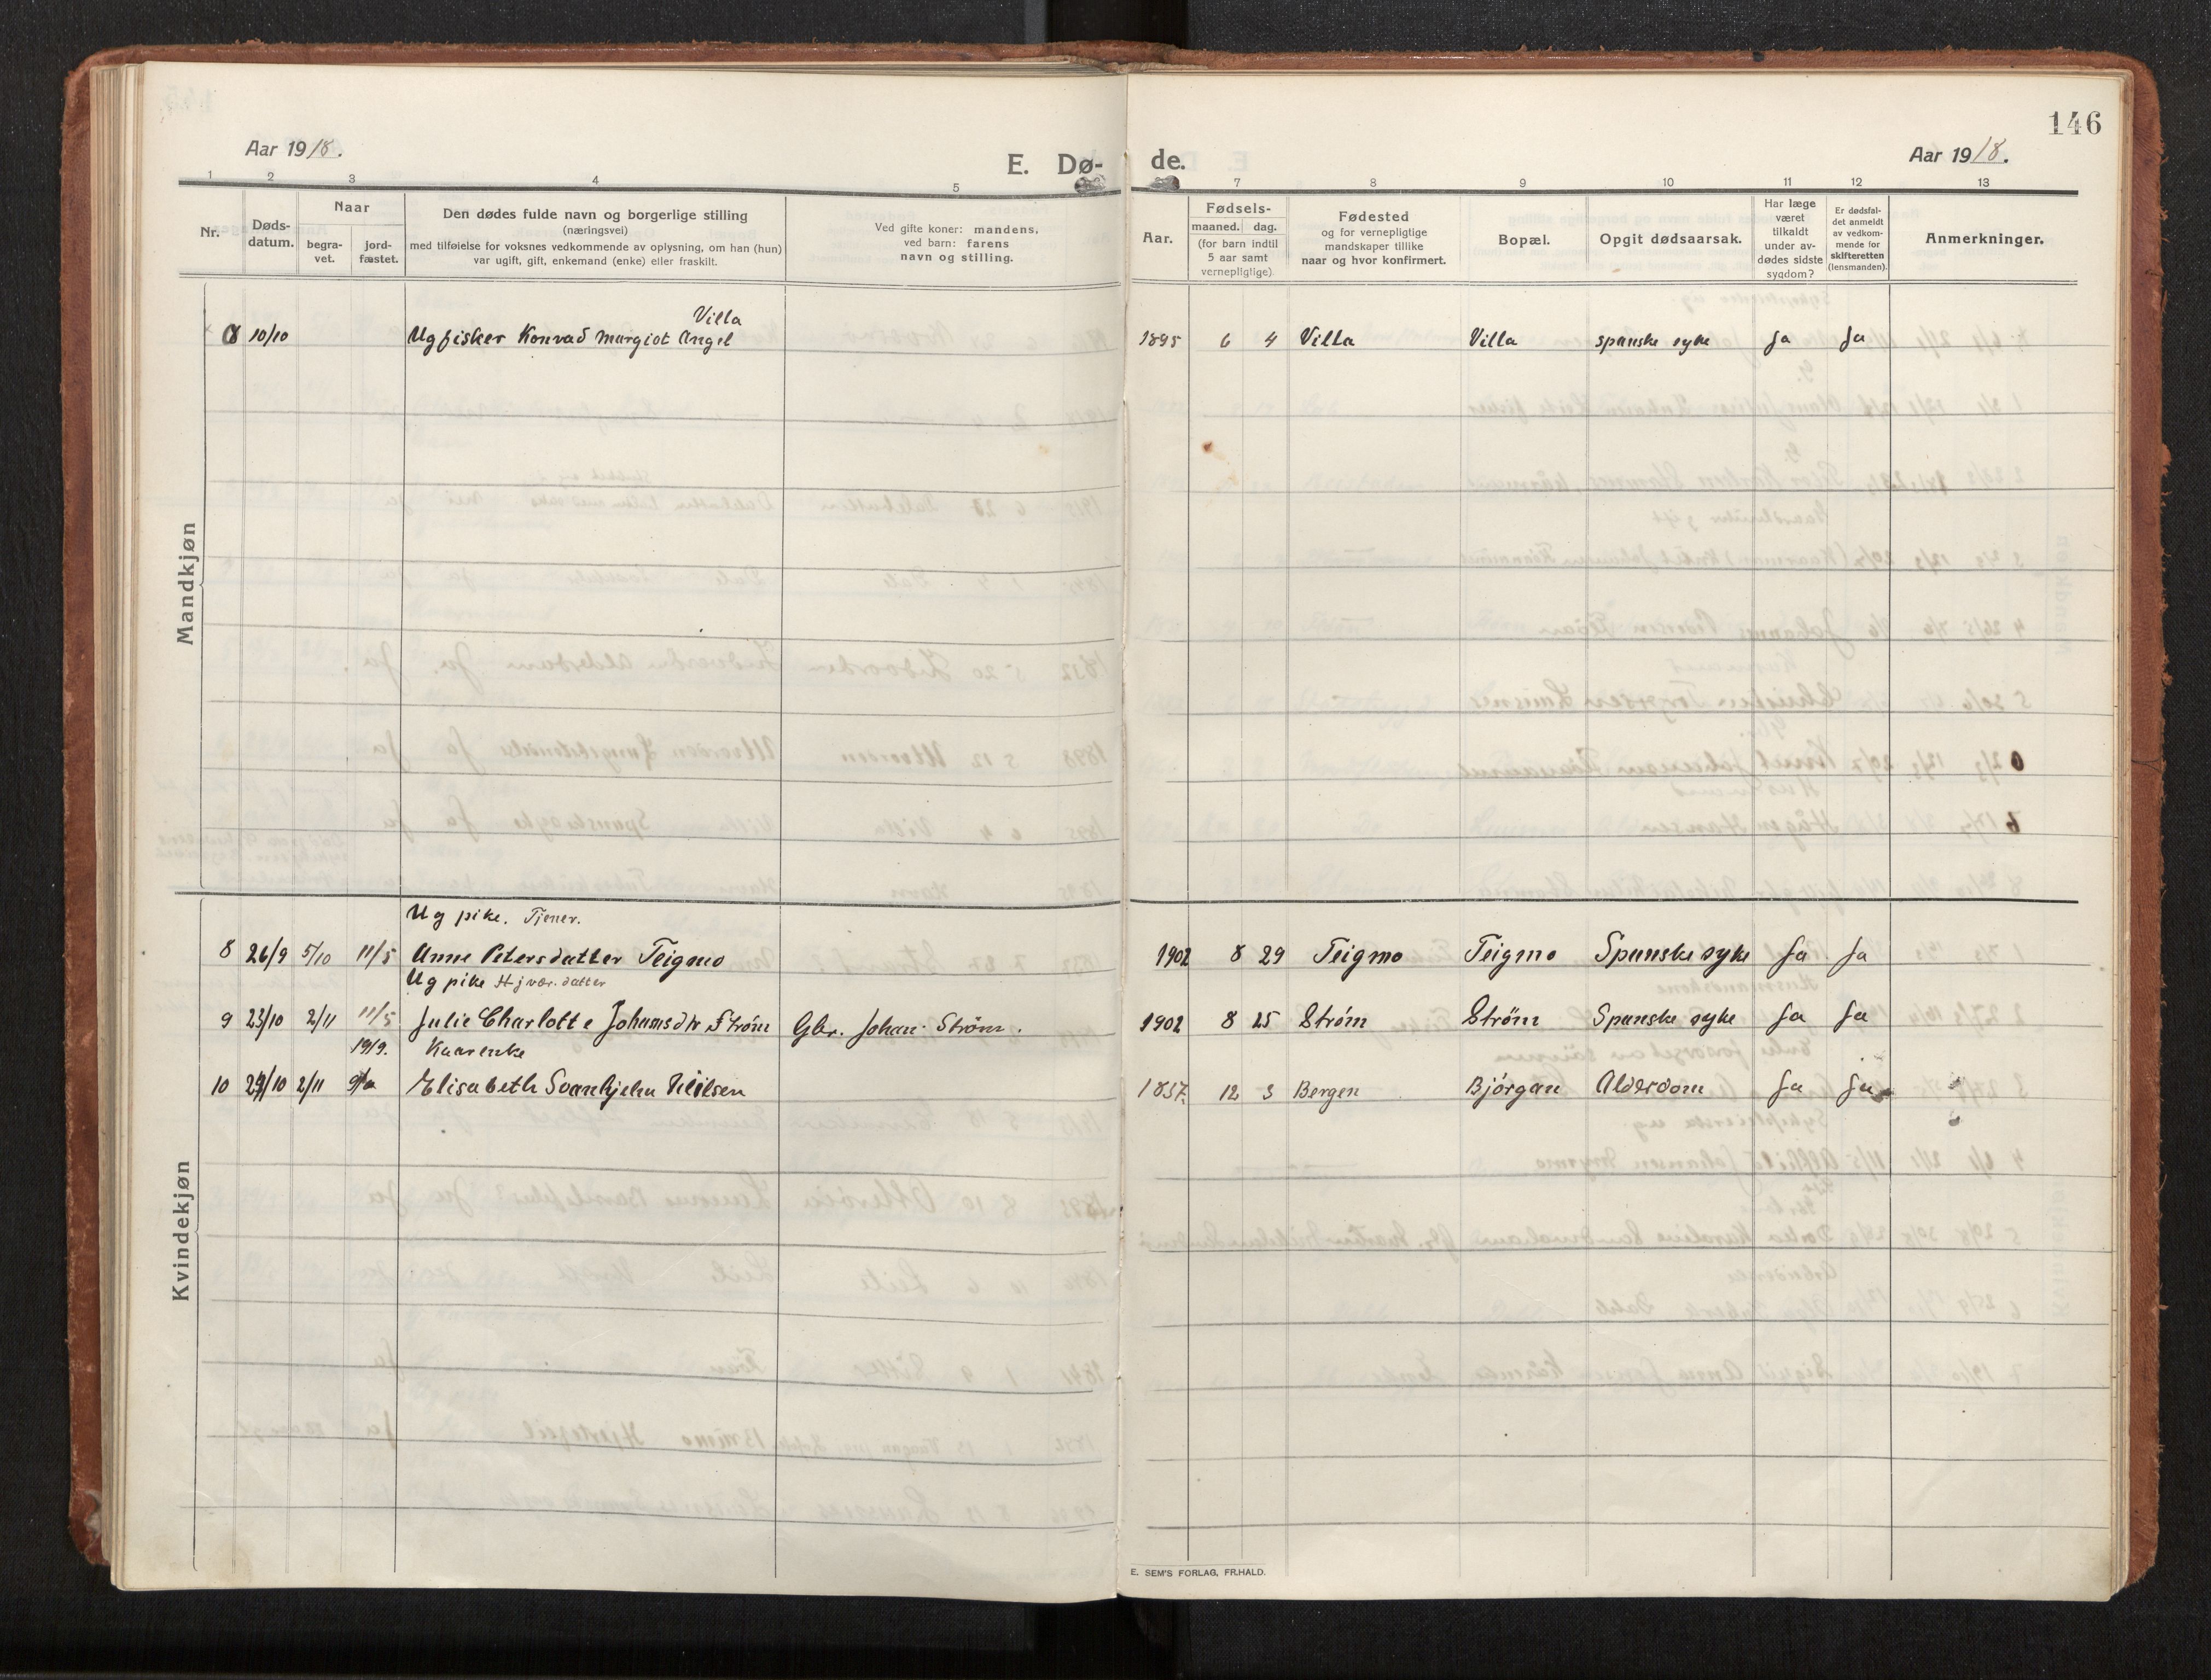 146
Aar 1918.
E. Dø-
de.
Aar 1918.
1 2 3 4 5 7 8 9 10 11 12 13
Nr.
Døds-
datum.
Naar
begra-
vet.
jord-
fæstet.
Den dødes fulde navn og borgerlige stilling
(næringsvei)
med tilføielse for voksnes vedkommende av oplysning, om han (hun)
var ugift, gift, enkemand (enke) eller fraskilt.
Ved gifte koner: mandens,
ved barn: farens
navn og stilling.
Aar.
Fødsels-
maaned. dag.
(for barn indtil
5 aar samt
vernepligtige)
Fødested
og for vernepligtige
mandskaper tillike
naar og hvor konfirmert.
Bopæl.
Opgit dødsaarsak.
Har læge
været
tilkaldt
under av-
dødes sidste
sygdom?
Er dødsfal-
det anmeldt
av vedkom-
mende for
skifteretten
(lensmanden).
Anmerkninger.
Mandkjøn
Villa
10/10 Ug fisker Konrad Margiot Angel 1895 6 4 Villa Villa spanske syke Ja Ja
Kvindekjøn
Ug pike. Tjener.
8 26/9 5/10 11/5 Anne Petersdatter Teigmo 1902 8 29 Teigmo Teigmo Spanske syke Ja Ja
Ug pike Hjvær. datter
9 23/10 2/11 11/5 Julie Charlotte Johansdtr Strøm Gbr. Johan Strøm. 1902 8 25 Strøm Strøm Spanske syke Ja Ja
1919. Kaarenke
10 29/10 2/11 Elisabeth Svanhjelm Nilsen 1837. 12 3 Bergen Bjørgan Alderdom Ja Ja
E. SEM'S FORLAG, FR.HALD.